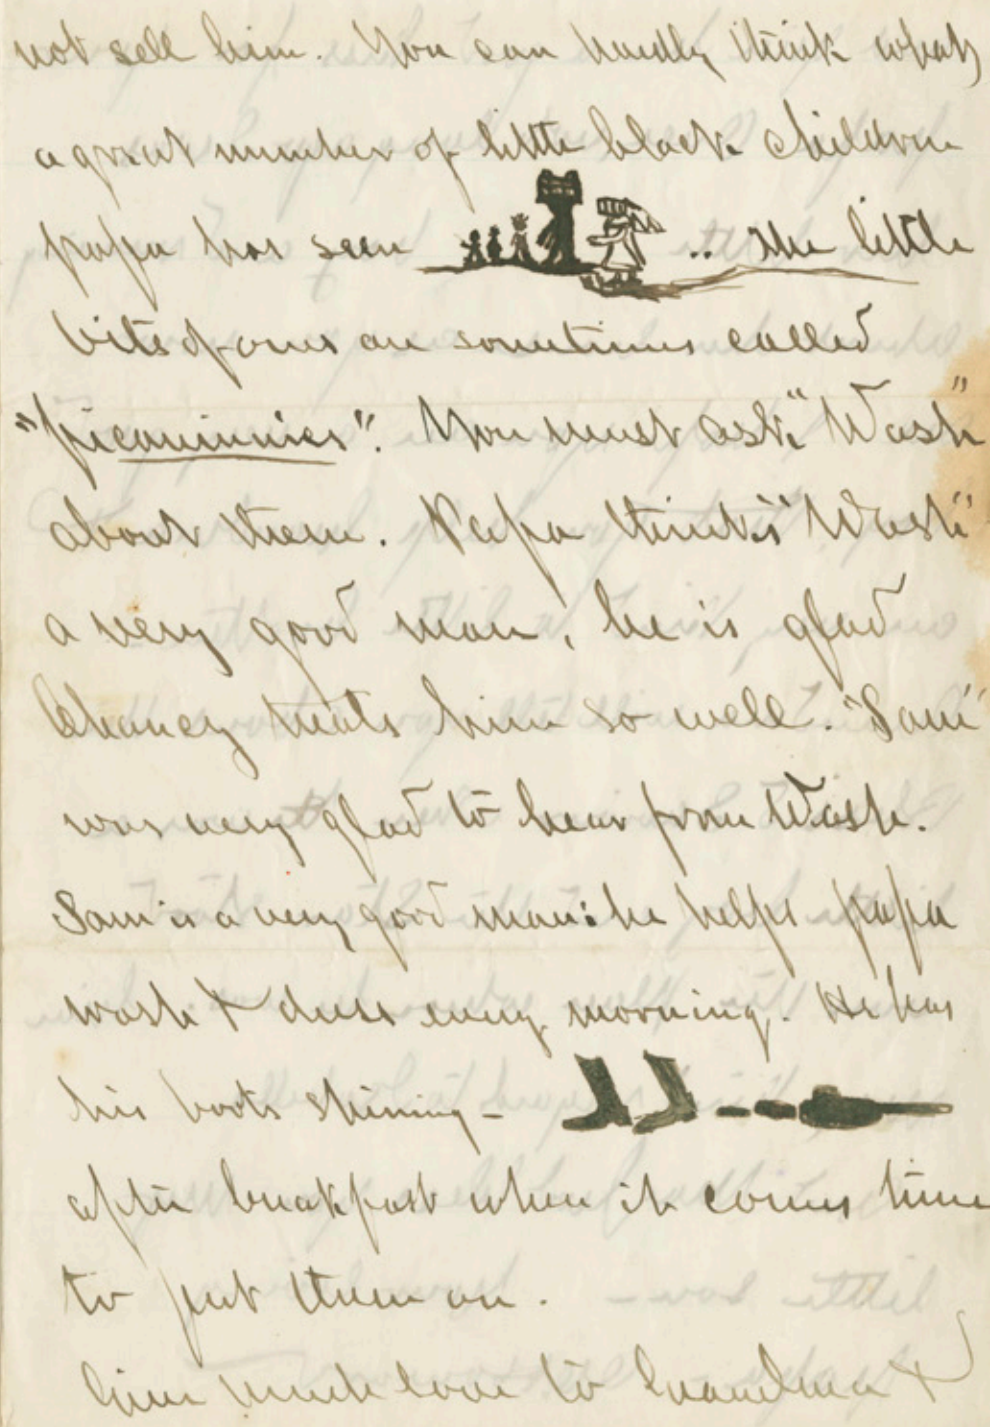 not sell him. You can hardly think what
a great number of little black children
papa has seen .. the little
bits of ones are sometimes called
"picaninnies". You must ask "Wash"
about them. Papa thinks "Wash"
a very good man, he is glad
Chancy treats him so well. "Sam"
was very glad to hear from Wash.
Sam is a very good man: he helps papa
wash & dress every morning. He has
his boots shining -
after breakfast when it comes time
to put them on.
Give much love to Grandma &